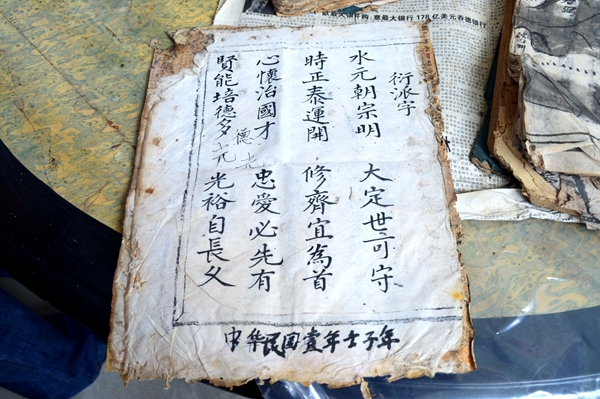 衍派字
水元朝宗明 大定世可守
時正泰運開 修齊宜為首
心懷治國才 忠愛必先有
賢能培德多 光裕自長久
德光
中华民国壹年壬子年
意最大银行 178 亿美元吞德银行